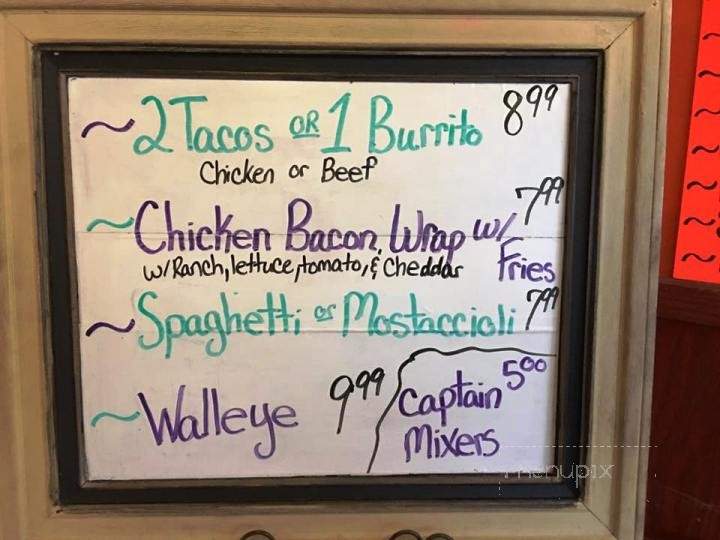 ~2 Tacos OR 1 Burrito 8 99
Chicken or Beef
~Chicken Bacon Wrap w/ Fries 7.99
w/Ranch, lettuce, tomato, & Cheddar
~Spaghetti or Mostaccioli 7.99
~Walleye 9 99
Captain 5 00
Mixers
menupix